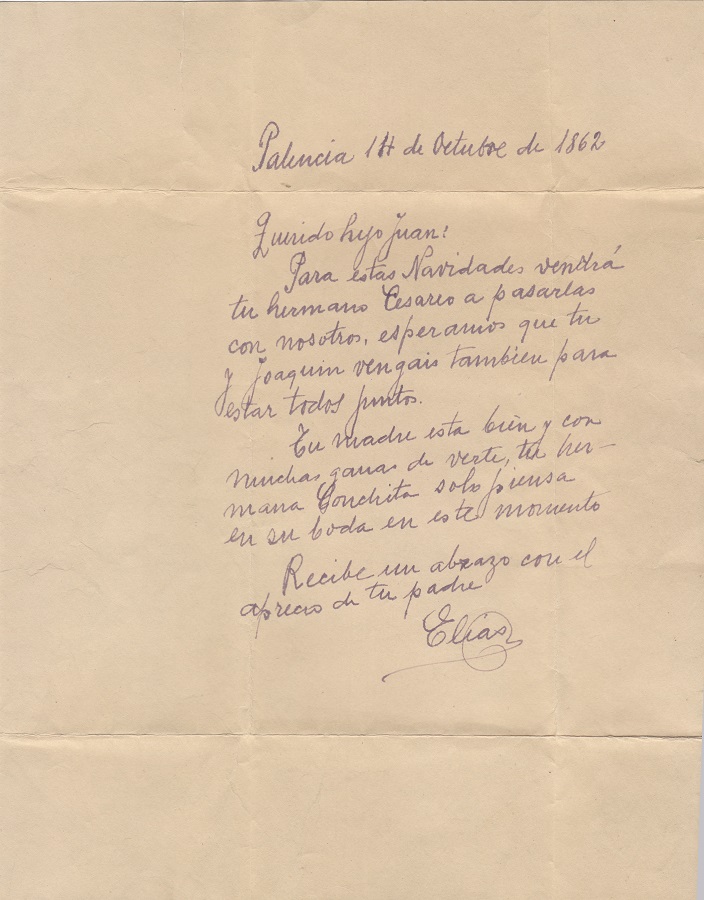 Palencia 14 de Octubre de 1862
Querido hijo Juan:
Para estas Navidades vendrá
tu hermano Cesareo a pasarlas
con nosotros, esperamos que tu
y Joaquin vengais tambien para
estar todos juntos.
Tu madre esta bien y con
muchas ganas de verte, tu her-
mana Conchita solo piensa
en su boda en este momento
Recibe un abrazo con el
aprecio de tu padre
Elias